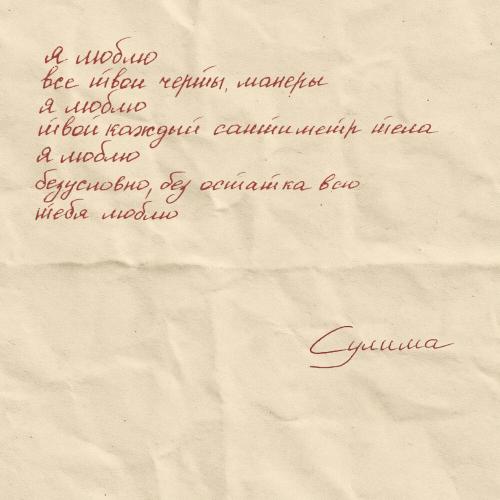 я люблю
все твои черты, манеры
я люблю
твой каждый сантиметр тела
я люблю
безусловно, без остатка всю
тебя люблю
Сулима